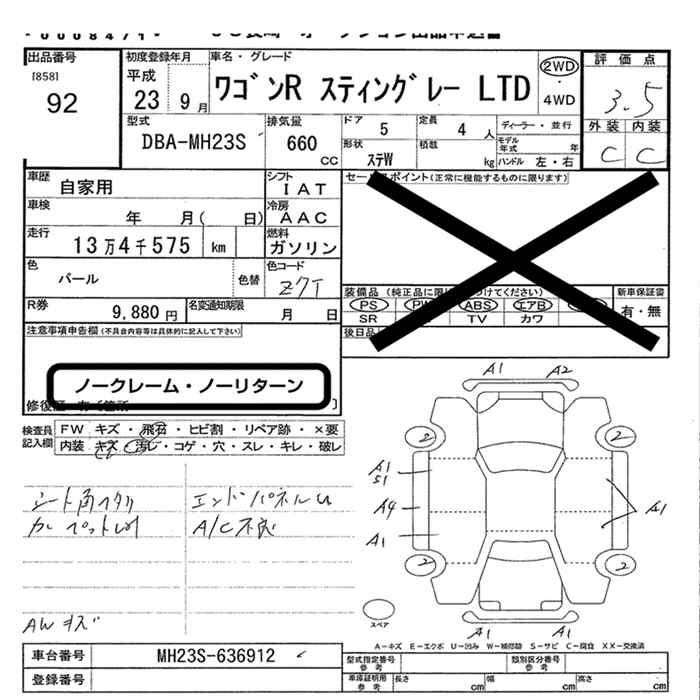 出品番号
[858]
92
初度登録年月
平成
23 9 月
車名・グレード
ワゴンR スティングレー LTD
2WD
・
4WD
評価点
3.5
外装 内装
C C
型式
DBA-MH23S
排気量
660
CC
ドア
5
定員
4 人
ディーラー・並行
モデル
年式 年
形状
ステW
積載
kg
ハンドル 左・右
車歴
自家用
シフト
IAT
車検
年 月( 日)
冷房
AAC
走行
13万4千575 km
燃料
ガソリン
色
パール
色替
色コード
Z7T
R券
9,880 円
名変通知期限
月 日
セールスポイント(正常に機能するものに限ります)
PS ABS エアB
SR TV カワ
新車保証書
有・無
後日品
注意事項申告欄(不具合内容等は具体的に記入して下さい)
ノークレーム・ノーリターン
検査員
記入欄
FW キズ・飛石・ヒビ割・リペア跡・×要
内装 キズ・汚レ・コゲ・穴・スレ・キレ・破レ
エンドパネルU
A/C不良
AWキズ
A1 A2
2 2
A1
S1
A4
A1
A1
2 2
A1 A1
スペア
A-キズ E-エクボ U-凹み W-補修跡 S-サビ C-腐食 XX-交換済
車台番号
MH23S-636912
登録番号
型式指定番号
参考
類別区分番号
参考
車庫証明用
参考
長さ cm 幅 cm 高さ cm